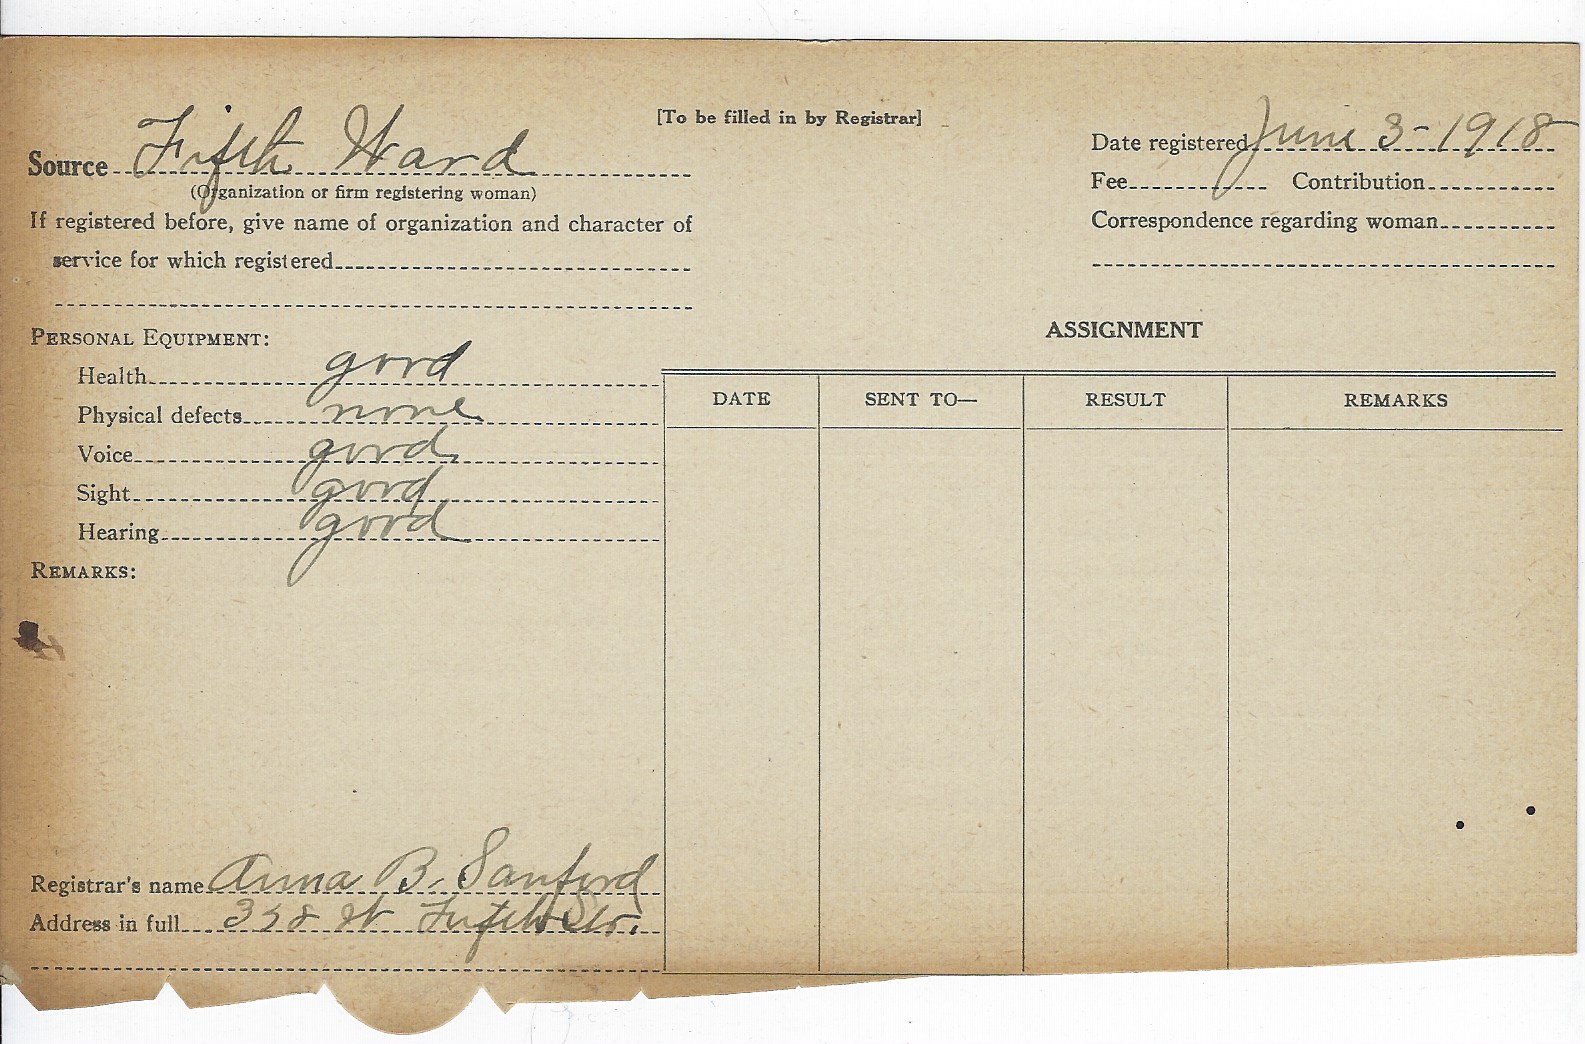 [To be filled in by Registrar]
Source Fifth Ward
(Organization or firm registering woman)
If registered before, give name of organization and character of
service for which registered
Date registered June 3-1918
Fee Contribution
Correspondence regarding woman
PERSONAL EQUIPMENT:
Health good
Physical defects none
Voice good
Sight good
Hearing good
REMARKS:
Registrar's name Anna B. Sanford
Address in full W Fifth Str.
ASSIGNMENT
DATE SENT TO— RESULT REMARKS